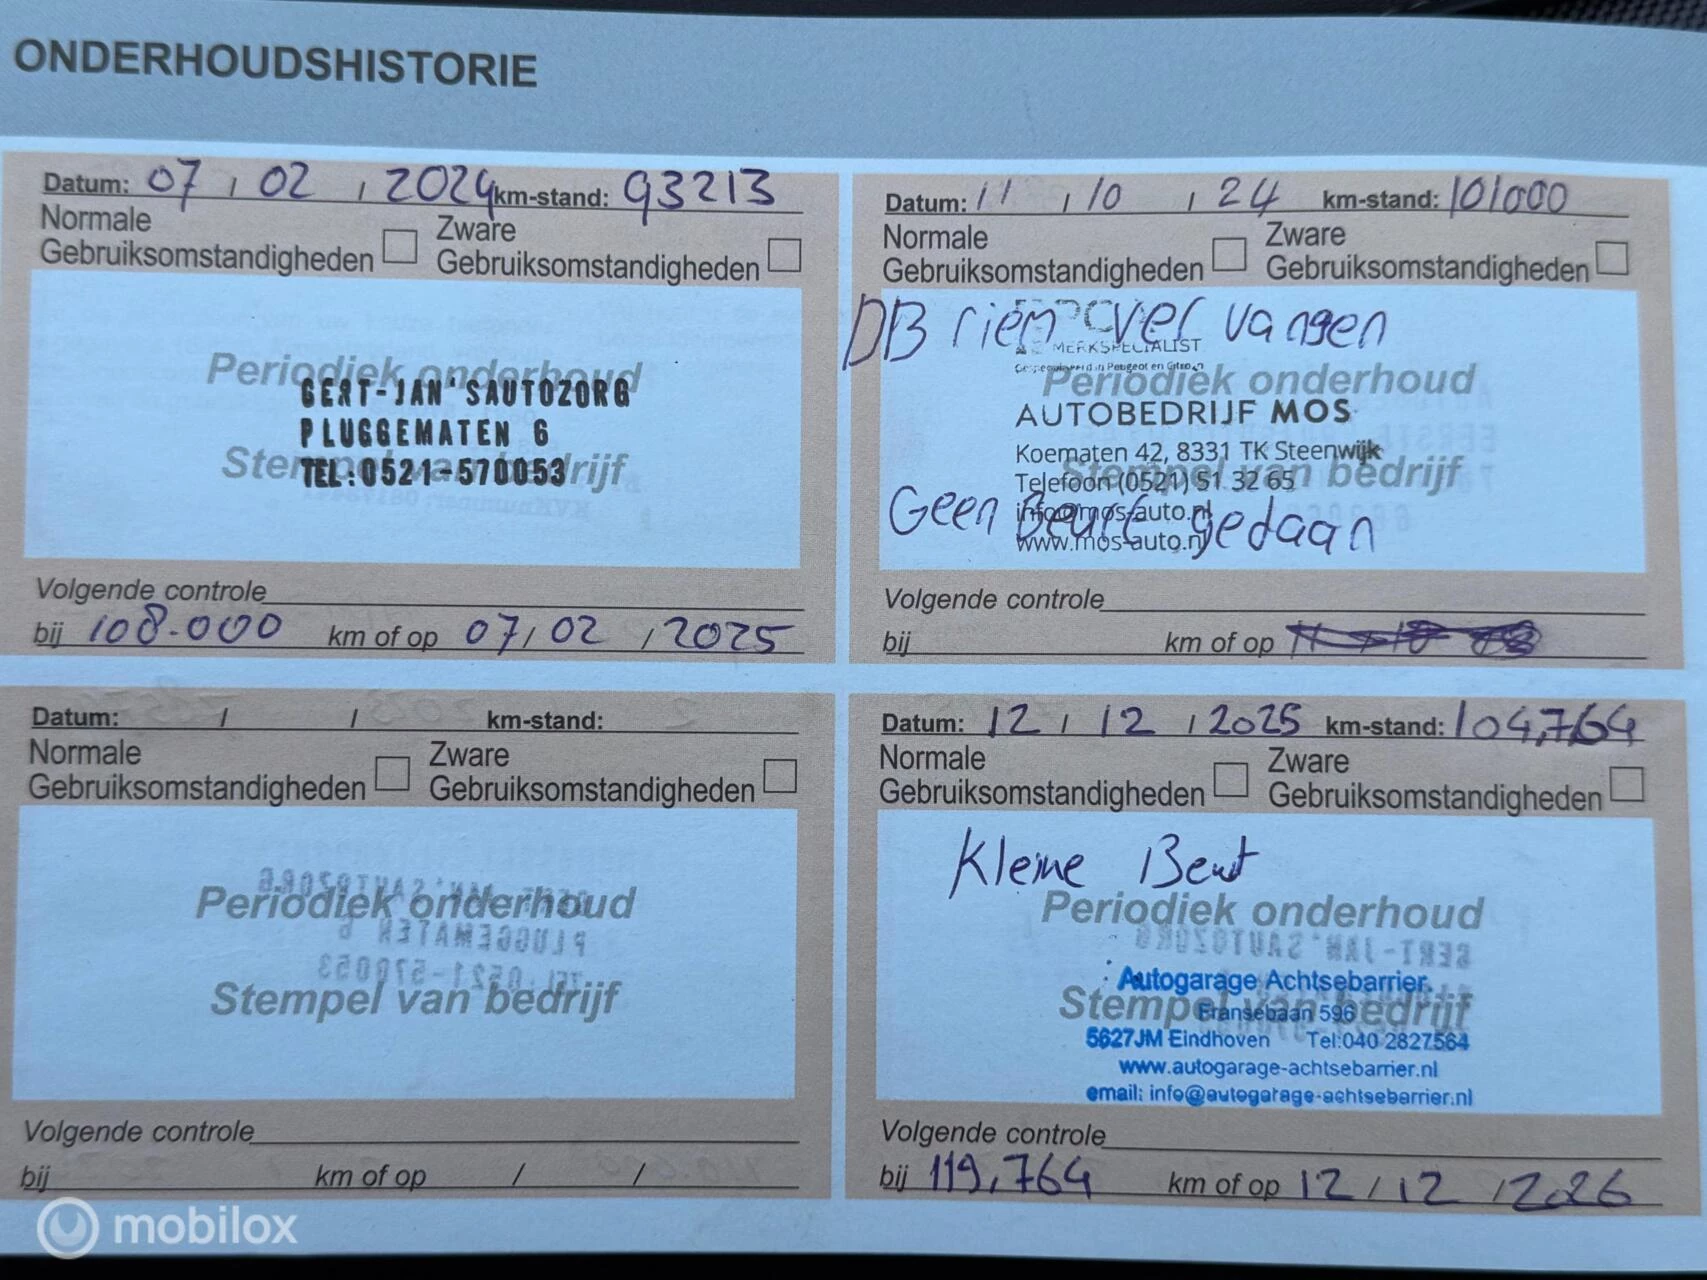 ONDERHOUDSHISTORIE
Datum: 07 / 02 / 2024 km-stand: 93213
Normale Gebruiksomstandigheden
Zware Gebruiksomstandigheden
Periodiek onderhoud
GERT-JAN'SAUTOZORG
PLUGGEMATEN 6
Stempel van bedrijf
TEL:0521-570053
Volgende controle
bij 108.000 km of op 07 / 02 / 2025
Datum: 11 / 10 / 24 km-stand: 101000
Normale Gebruiksomstandigheden
Zware Gebruiksomstandigheden
DB riem ver vangen
MERKSPECIALIST
Gespecialiseerd in Peugeot en Citroën
Periodiek onderhoud
AUTOBEDRIJF MOS
Koematen 42, 8331 TK Steenwijk
Stempel van bedrijf
Telefoon (0521) 51 32 65
info@mos-auto.nl
Geen Beurt gedaan
www.mos-auto.nl
Volgende controle
bij km of op
Datum: / / km-stand:
Normale Gebruiksomstandigheden
Zware Gebruiksomstandigheden
Periodiek onderhoud
Stempel van bedrijf
Volgende controle
bij km of op / /
Datum: 12 / 12 / 2025 km-stand: 104,764
Normale Gebruiksomstandigheden
Zware Gebruiksomstandigheden
Kleine Beurt
Periodiek onderhoud
Autogarage Achtsebarrier
Stempel van bedrijf
Fransebaan 596
5627JM Eindhoven Tel:040 2827564
www.autogarage-achtsebarrier.nl
email: info@autogarage-achtsebarrier.nl
Volgende controle
bij 119,764 km of op 12 / 12 / 2026
mobilox